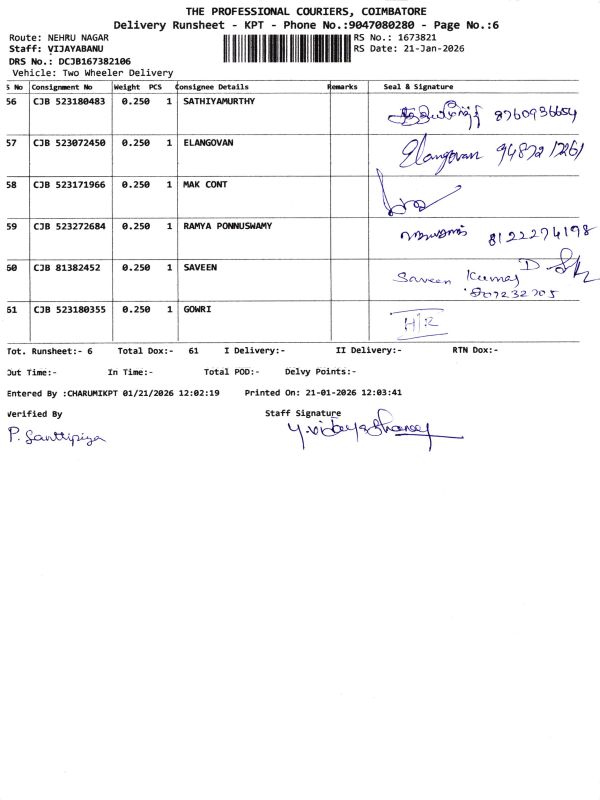 THE PROFESSIONAL COURIERS, COIMBATORE
Delivery Runsheet - KPT - Phone No.:9047080280 - Page No.:6
Route: NEHRU NAGAR
RS No.: 1673821
Staff: VIJAYABANU
RS Date: 21-Jan-2026
DRS No.: DCJB167382106
Vehicle: Two Wheeler Delivery
S No Consignment No Weight PCS Consignee Details Remarks Seal & Signature
56 CJB 523180483 0.250 1 SATHIYAMURTHY 8760936654
57 CJB 523072450 0.250 1 ELANGOVAN Elangovan 94872 17261
58 CJB 523171966 0.250 1 MAK CONT
59 CJB 523272684 0.250 1 RAMYA PONNUSWAMY 8122274198
60 CJB 81382452 0.250 1 SAVEEN Saveen Kumar D
61 CJB 523180355 0.250 1 GOWRI H/R
Tot. Runsheet:- 6 Total Dox:- 61 I Delivery:- II Delivery:- RTN Dox:-
Out Time:- In Time:- Total POD:- Delvy Points:-
Entered By :CHARUMIKPT 01/21/2026 12:02:19 Printed On: 21-01-2026 12:03:41
Verified By Staff Signature